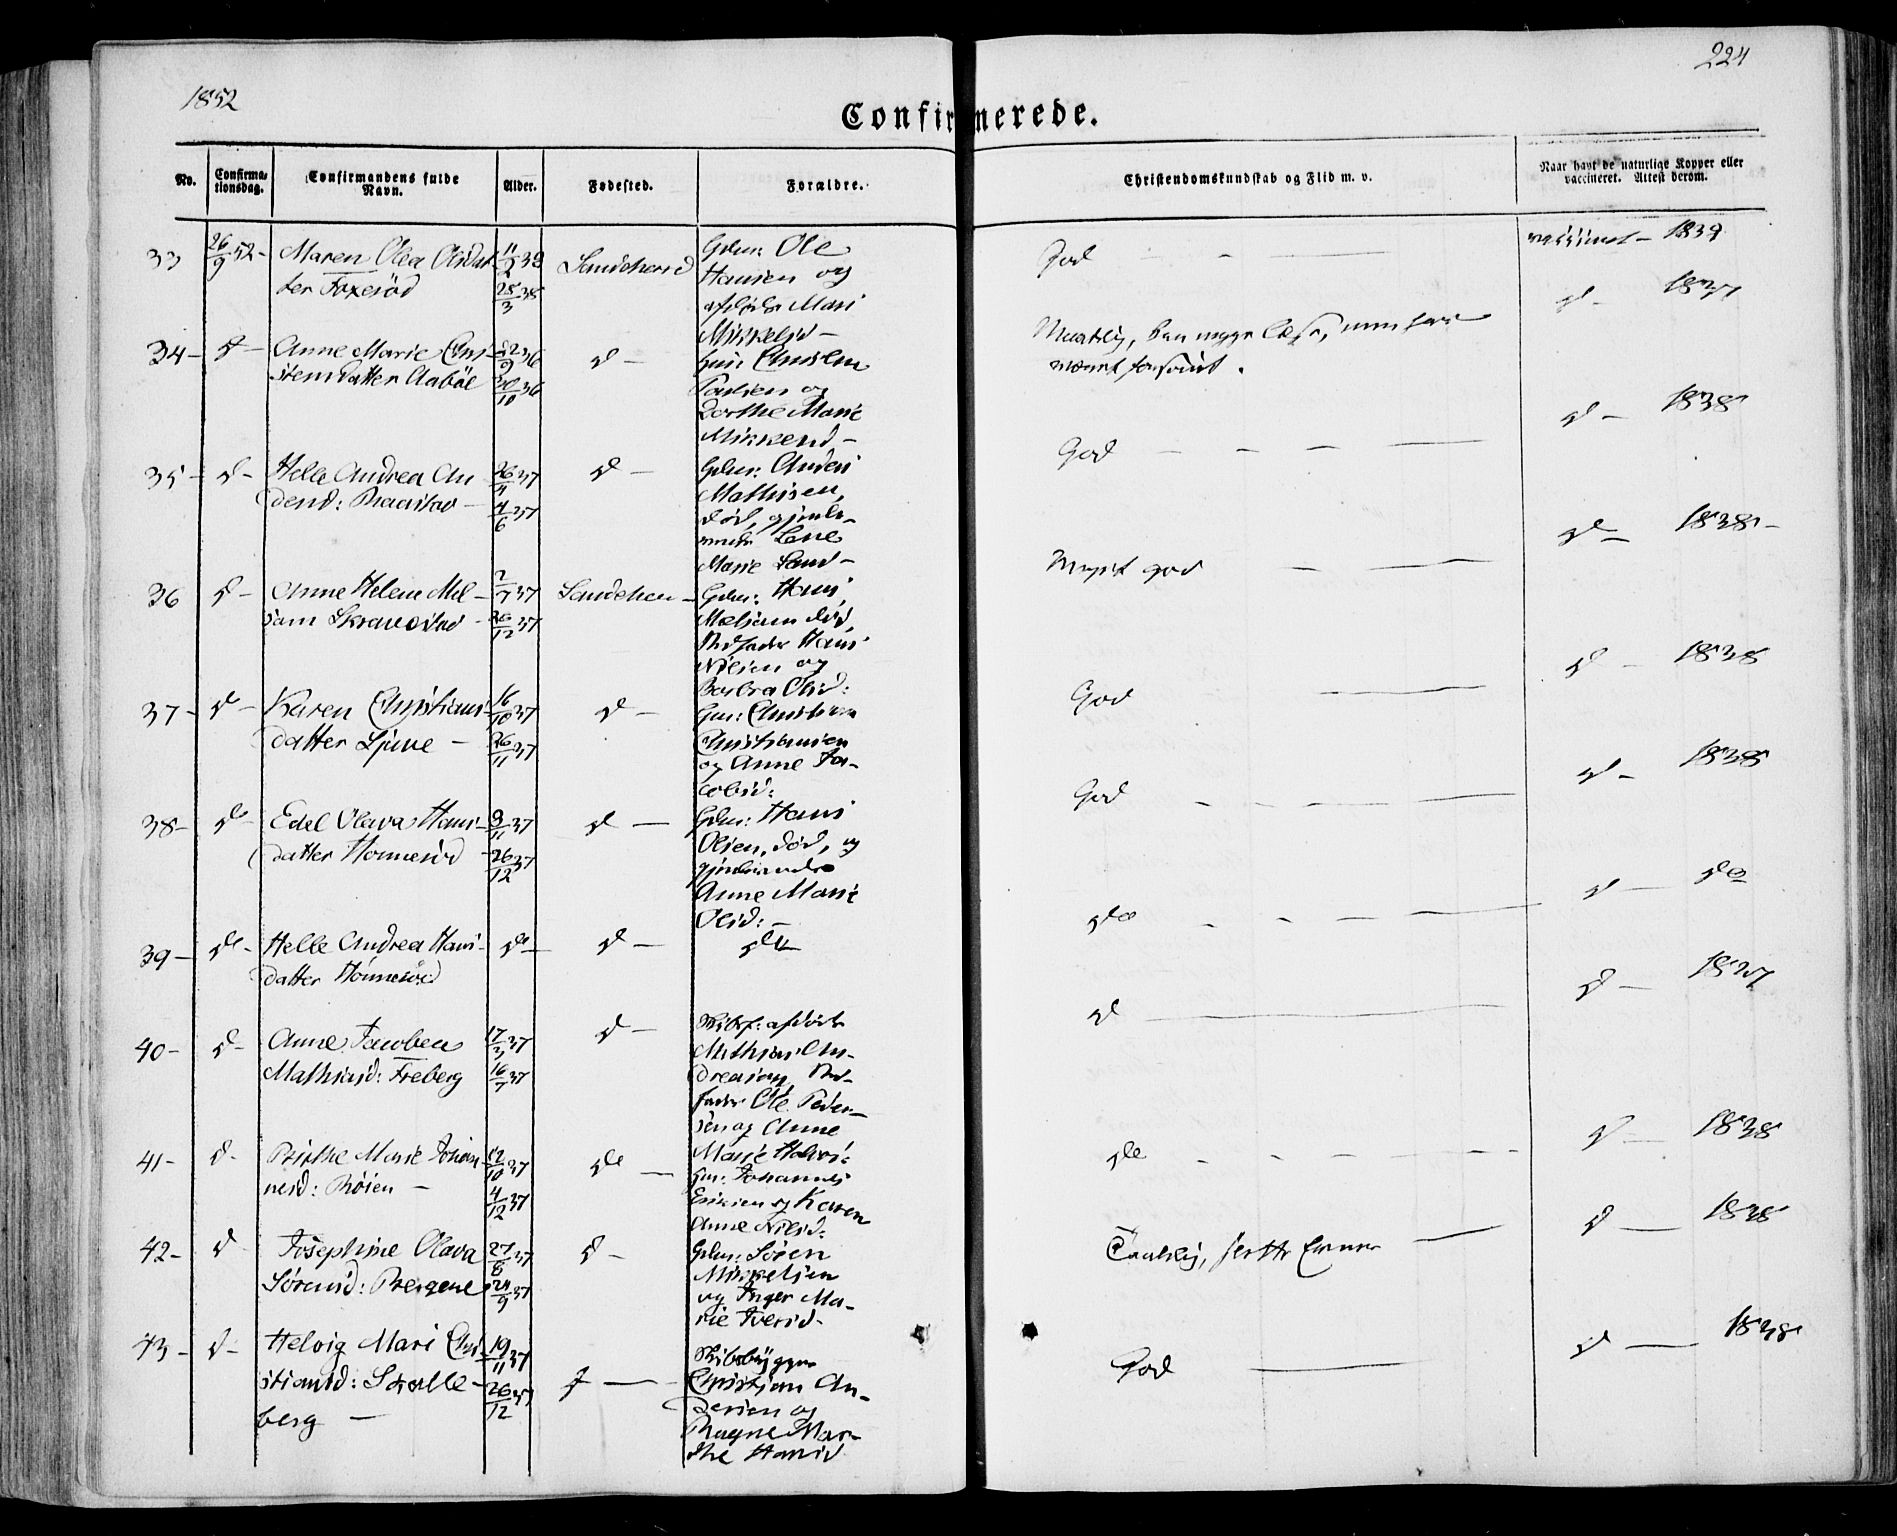 1852
224
Confirmerede.
No.
Confirma-
tionsdag.
Confirmandens fulde
Navn.
Alder.
Fødested.
Forældre.
Christendomskundskab og Flid m. v.
Naar havt de naturlige Kopper eller
vaccineret. Attest derom.
33 26/9 52 - Maren Olea Olsdat
ter Foxerød
11/2 38
25/3 38
Sandeherred
Gdm: Ole
Hansen og
afdøde Mari
Mikkelsd -
God - - —
vaccineret - 1839
34 - d - Anne Marie Chri-
stensdatter Aabøe
22/9 36
30/10 36
d -
Christen
Paulsen og
Dorthe Marie
Mikkelsd -
Maatelig, kan
d - 1837
35 - d - Helle Andrea An
dersd: Raastad -
26/4 37
4/6 37
d -
Gdm: Anders
Mathisen,
død,
Lene
Marie
God - - - —
d - 1838
36 d - Anne Helene Mel-
som Skravestad -
2/7 37
26/12 37
Sandeher -
Gdm: Hans
Melsom død,
Stedfader Hans
Nilsen og
Barbra Olsd:
Meget god - —
d - 1838 -
37 - d - Karen Christians
datter Ljune -
16/10 37
26/11 37
d -
Gm: Christian
Christiansen
og Anne Ja-
cobsd:
God —
d - 1838
38 - d - Edel Olava Hans-
datter Honnerød -
3/11 37
26/12 37
d —
Gdm: Hans
Olsen, død, og
Anne Marie
Olsd: -
God - - - —
d - 1838
39 - do - Helle Andrea Hans-
datter Honnerød
do -
d -
do
do - - - —
d - do
40 - d - Anne Jacobea
Mathiasd: Freberg
17/3 37
16/7 37
d -
Skibsf: afdøde
Mathias An-
dreasen, Sted-
fader Ole Peder-
sen og Anne
Marie
d —
d - 1837
41 - d - Birthe Marie Johan
nesd: Røien -
12/10 37
4/12 37
do —
Gm: Johannes
Eriksen og Karen
Anne Nilsd:
do - - - - -
d - 1838
42 - d Josephine Olava
Sørensd: Bergene
27/8 37
24/9 37
d -
Gdm: Søren
Mikkelsen
og Inger Ma-
rie Iversd -
—
d — 1838
43 - d - Helvig Mari Chri-
stiansd: Skalle-
berg -
19/11 37
26/12 37
Skibsbygger
Christian An-
dersen og
Ragne Mar-
the Hansd
God —
d — 1838